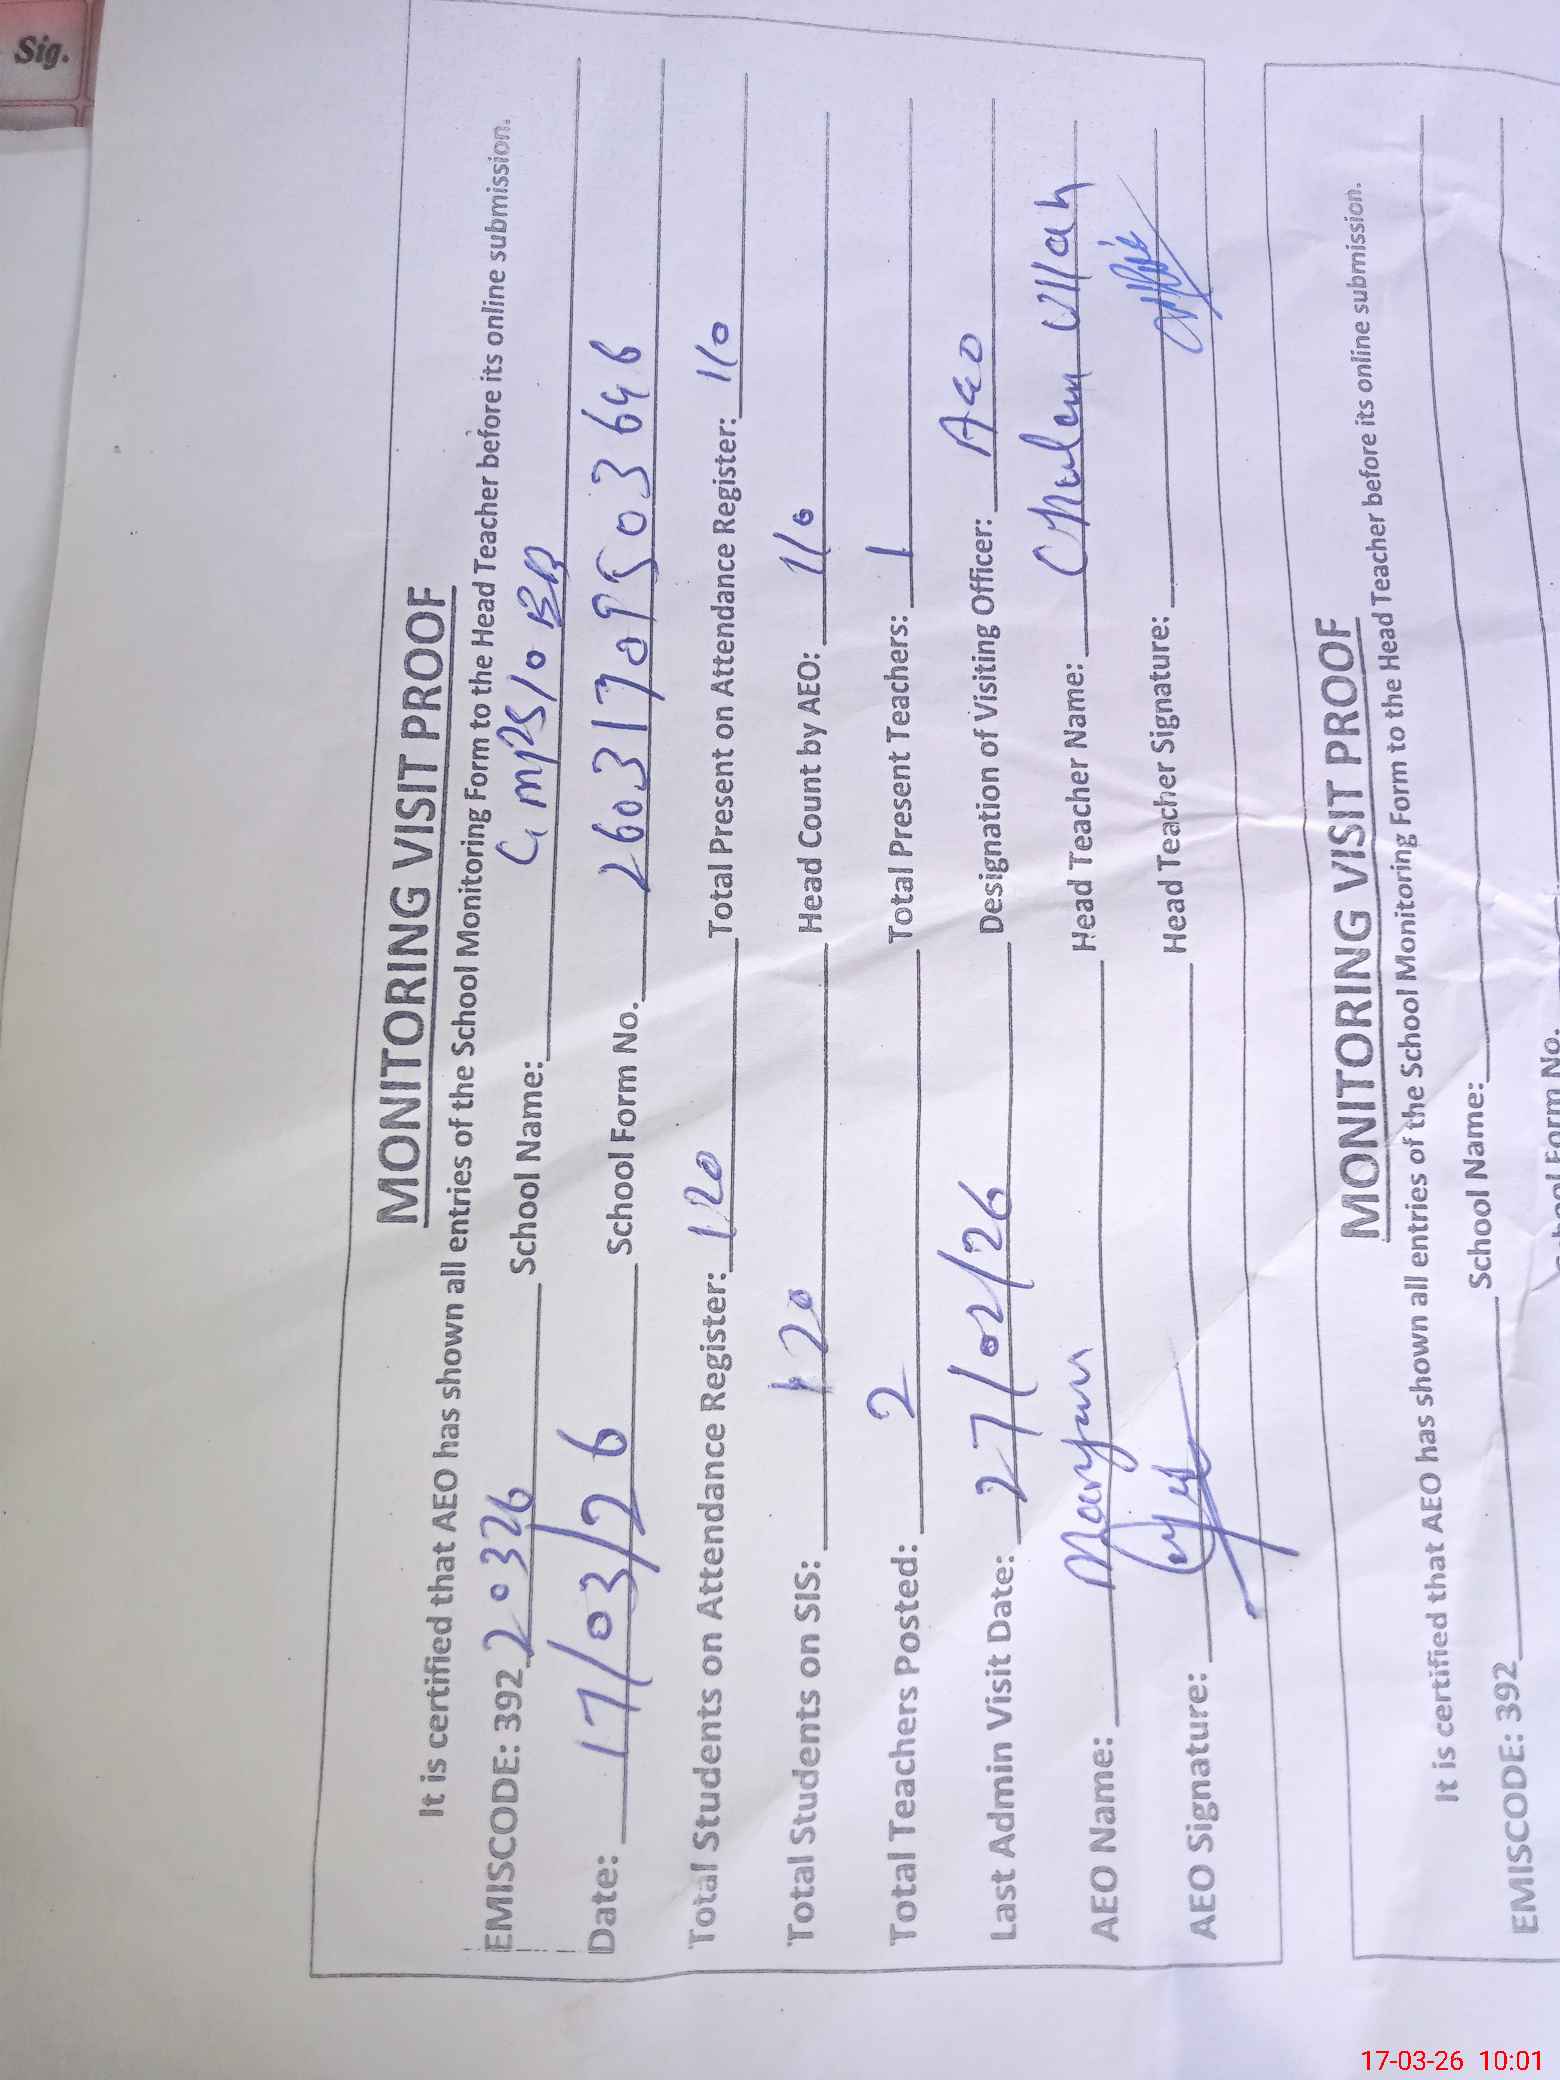 Sig.
MONITORING VISIT PROOF
It is certified that AEO has shown all entries of the School Monitoring Form to the Head Teacher before its online submission.
EMISCODE: 392 20326 School Name: GMPS 10 BD
Date: 17/03/26 School Form No. 260317095036 46
Total Students on Attendance Register: 120 Total Present on Attendance Register: 110
Total Students on SIS: 120 Head Count by AEO: 110
Total Teachers Posted: 2 Total Present Teachers: 1
Last Admin Visit Date: 27/02/26 Designation of Visiting Officer: AEO
AEO Name: Maryam Head Teacher Name: Ullah
AEO Signature: Head Teacher Signature:
MONITORING VISIT PROOF
It is certified that AEO has shown all entries of the School Monitoring Form to the Head Teacher before its online submission.
EMISCODE: 392 School Name:
School Form No.
17-03-26 10:01